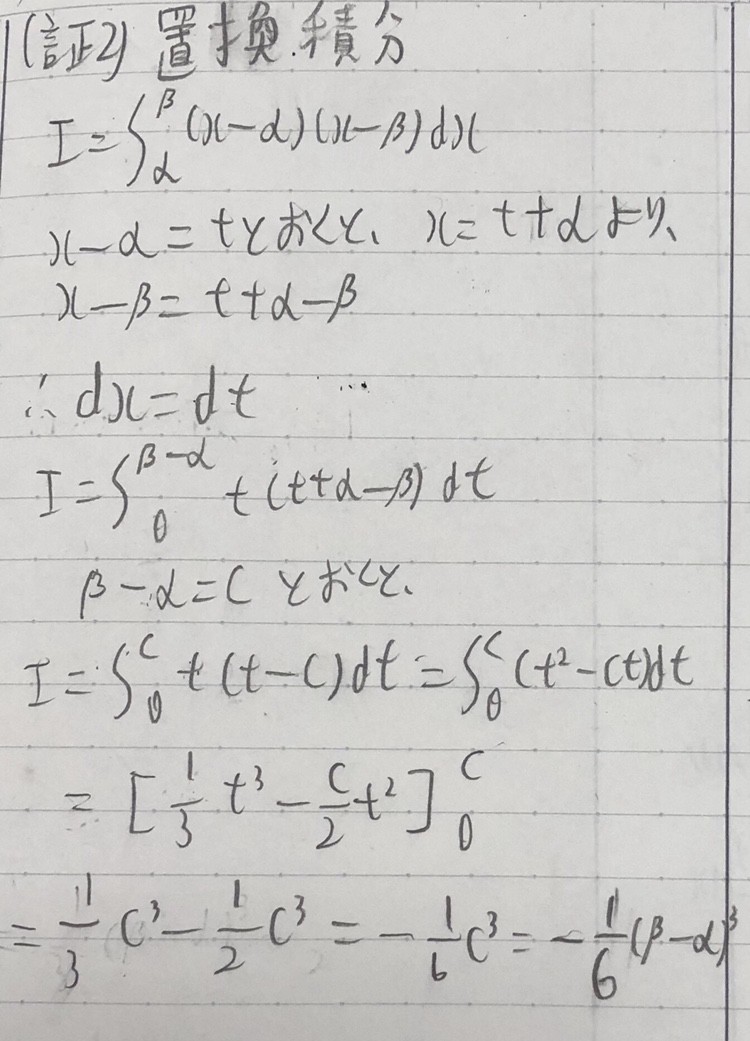 (証2) 置換積分
I = ∫_α^β (x-α)(x-β)dx
x-α = tとおくと、x = t+αより、
x-β = t+α-β
∴ dx = dt ...
I = ∫_0^{β-α} t(t+α-β)dt
β-α = C とおくと、
I = ∫_0^C t(t-C)dt = ∫_0^C (t²-Ct)dt
= [1/3 t³ - C/2 t²]_0^C
= 1/3 C³ - 1/2 C³ = -1/6 C³ = -1/6 (β-α)³